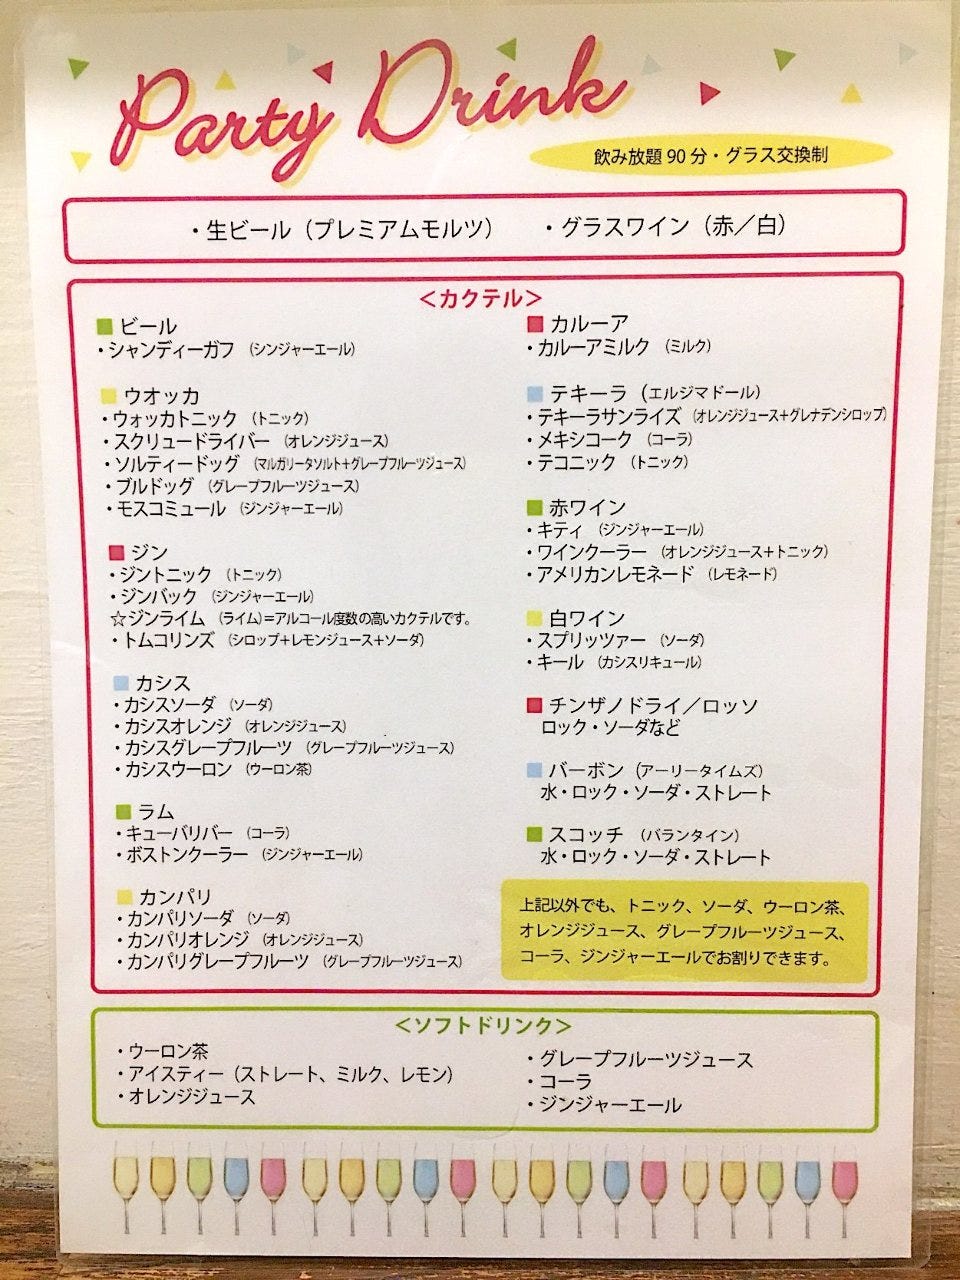 Party Drink
飲み放題90分・グラス交換制
・生ビール（プレミアムモルツ）　・グラスワイン（赤／白）
＜カクテル＞
■ ビール
・シャンディーガフ （シンジャーエール）
■ ウオッカ
・ウォッカトニック （トニック）
・スクリュードライバー （オレンジジュース）
・ソルティードッグ （マルガリータソルト＋グレープフルーツジュース）
・ブルドッグ （グレープフルーツジュース）
・モスコミュール （ジンジャーエール）
■ ジン
・ジントニック （トニック）
・ジンバック （ジンジャーエール）
☆ジンライム （ライム）＝アルコール度数の高いカクテルです。
・トムコリンズ （シロップ＋レモンジュース＋ソーダ）
■ カシス
・カシスソーダ （ソーダ）
・カシスオレンジ （オレンジジュース）
・カシスグレープフルーツ （グレープフルーツジュース）
・カシスウーロン （ウーロン茶）
■ ラム
・キューバリバー （コーラ）
・ボストンクーラー （ジンジャーエール）
■ カンパリ
・カンパリソーダ （ソーダ）
・カンパリオレンジ （オレンジジュース）
・カンパリグレープフルーツ （グレープフルーツジュース）
■ カルーア
・カルーアミルク （ミルク）
■ テキーラ （エルジマドール）
・テキーラサンライズ （オレンジジュース＋グレナデンシロップ）
・メキシコーク （コーラ）
・テコニック （トニック）
■ 赤ワイン
・キティ （ジンジャーエール）
・ワインクーラー （オレンジジュース＋トニック）
・アメリカンレモネード （レモネード）
■ 白ワイン
・スプリッツァー （ソーダ）
・キール （カシスリキュール）
■ チンザノドライ／ロッソ
ロック・ソーダなど
■ バーボン （アーリータイムズ）
水・ロック・ソーダ・ストレート
■ スコッチ （バランタイン）
水・ロック・ソーダ・ストレート
上記以外でも、トニック、ソーダ、ウーロン茶、
オレンジジュース、グレープフルーツジュース、
コーラ、ジンジャーエールでお割りできます。
＜ソフトドリンク＞
・ウーロン茶
・アイスティー（ストレート、ミルク、レモン）
・オレンジジュース
・グレープフルーツジュース
・コーラ
・ジンジャーエール